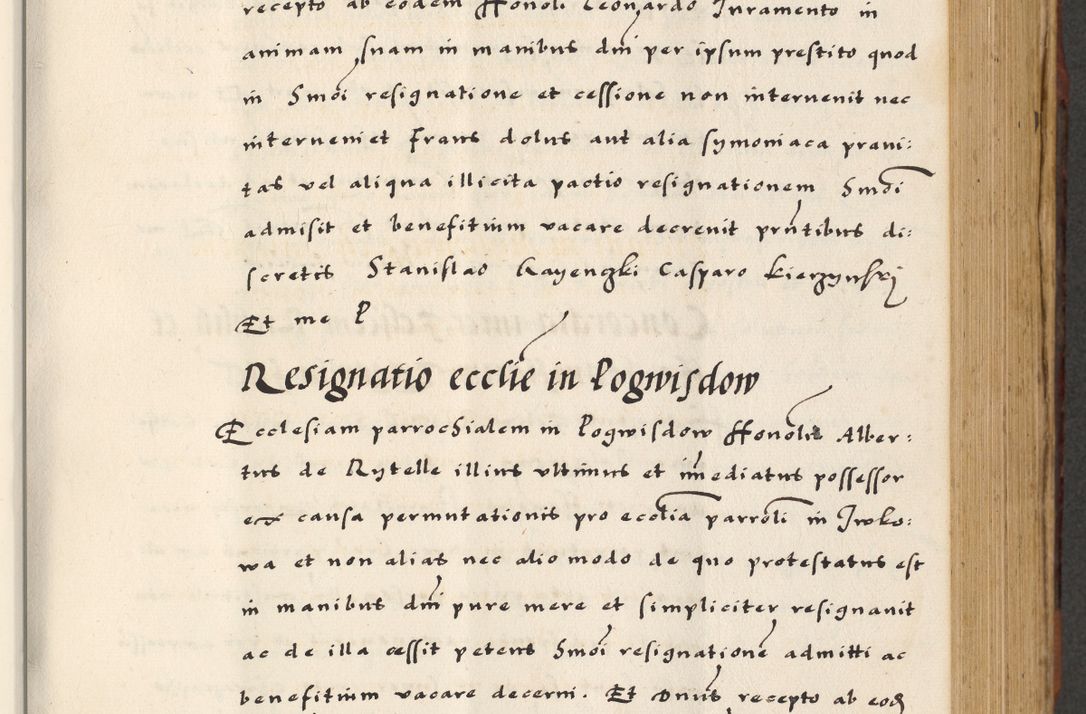 recepto ab eodem Honoli Leonardo Juramento in
animam suam in manibus dni per ipsum prestito quod
in Smoi resignatione et cessione non intervenit nec
interveniet fraus dolus aut alia symoniaca pravi:
tas vel aliqua illicita pactio resignationem Smoi
admisit et benefitium vacare decrevit prntibus di:
scretis Stanislao Rayenczki Casparo Kierzynski
Et me P
Resignatio ecclie in Pogwisdow
Ecclesiam parrochialem in Pogwisdow Honolis Alber:
tus de Rytelle illius ultimus et imediatus possessor
ex causa permutationis pro eccolia parroli in Iwko:
wa et non alias nec alio modo de quo protestatus est
in manibus dni pure mere et simpliciter resignavit
ac de illa cessit petens Smoi resignatione admitti ac
benefitium vacare decerni. Et Dnus recepto ab eod